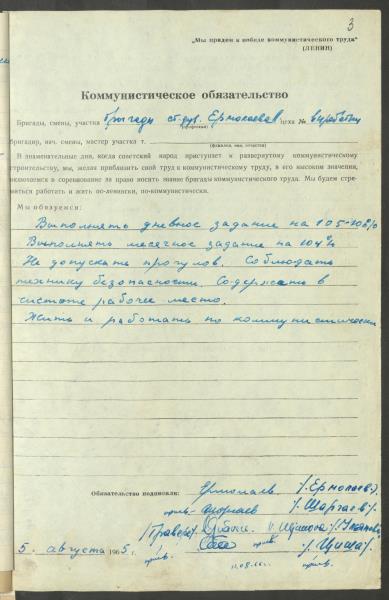 3
„Мы придем к победе коммунистического труда"
(ЛЕНИН)
Коммунистическое обязательство
Бригады, смены, участка бригады ст. Ермолаева цеха №
(профессия)
бригадир, нач. смены, мастер участка т.
(фамилия, имя, отчество)
В знаменательные дни, когда советский народ приступает к развернутому коммунистическому
строительству, мы, желая приблизить свой труд к коммунистическому труду, в его высоком значении,
включаемся в соревнование за право носить звание бригады коммунистического труда. Мы будем стре-
миться работать и жить по-ленински, по-коммунистически.
Мы обязуемся:
Выполнять дневное задание на 105-108%
Выполнять месячное задание на 104%
Не допускать прогулов. Соблюдать
технику безопасности. Содержать в
чистоте рабочее место.
Жить и работать по коммунистически
Обязательство подписали: Ермолаев /. Ермолаев/.
/. Шаргаев/.
/. Циша/.
5. августа 1965 г.